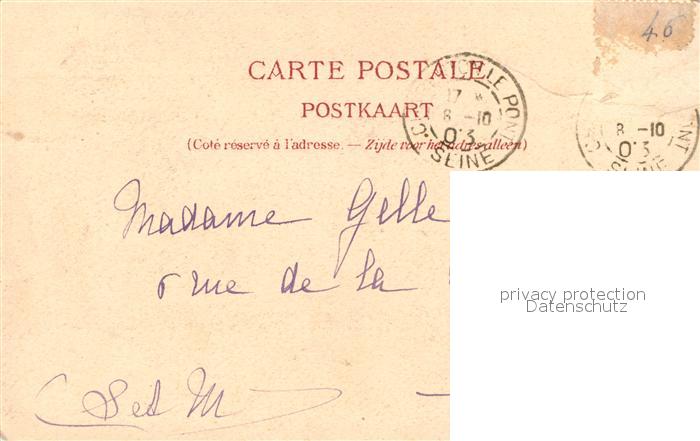 46
CARTE POSTALE
POSTKAART
(Coté réservé à l'adresse. — Zijde voor het adres alleen)
LE PONT
17
8 -10
03
SEINE
8 -10
03
Madame Gelle
6 rue de la
(Set M
privacy protection
Datenschutz